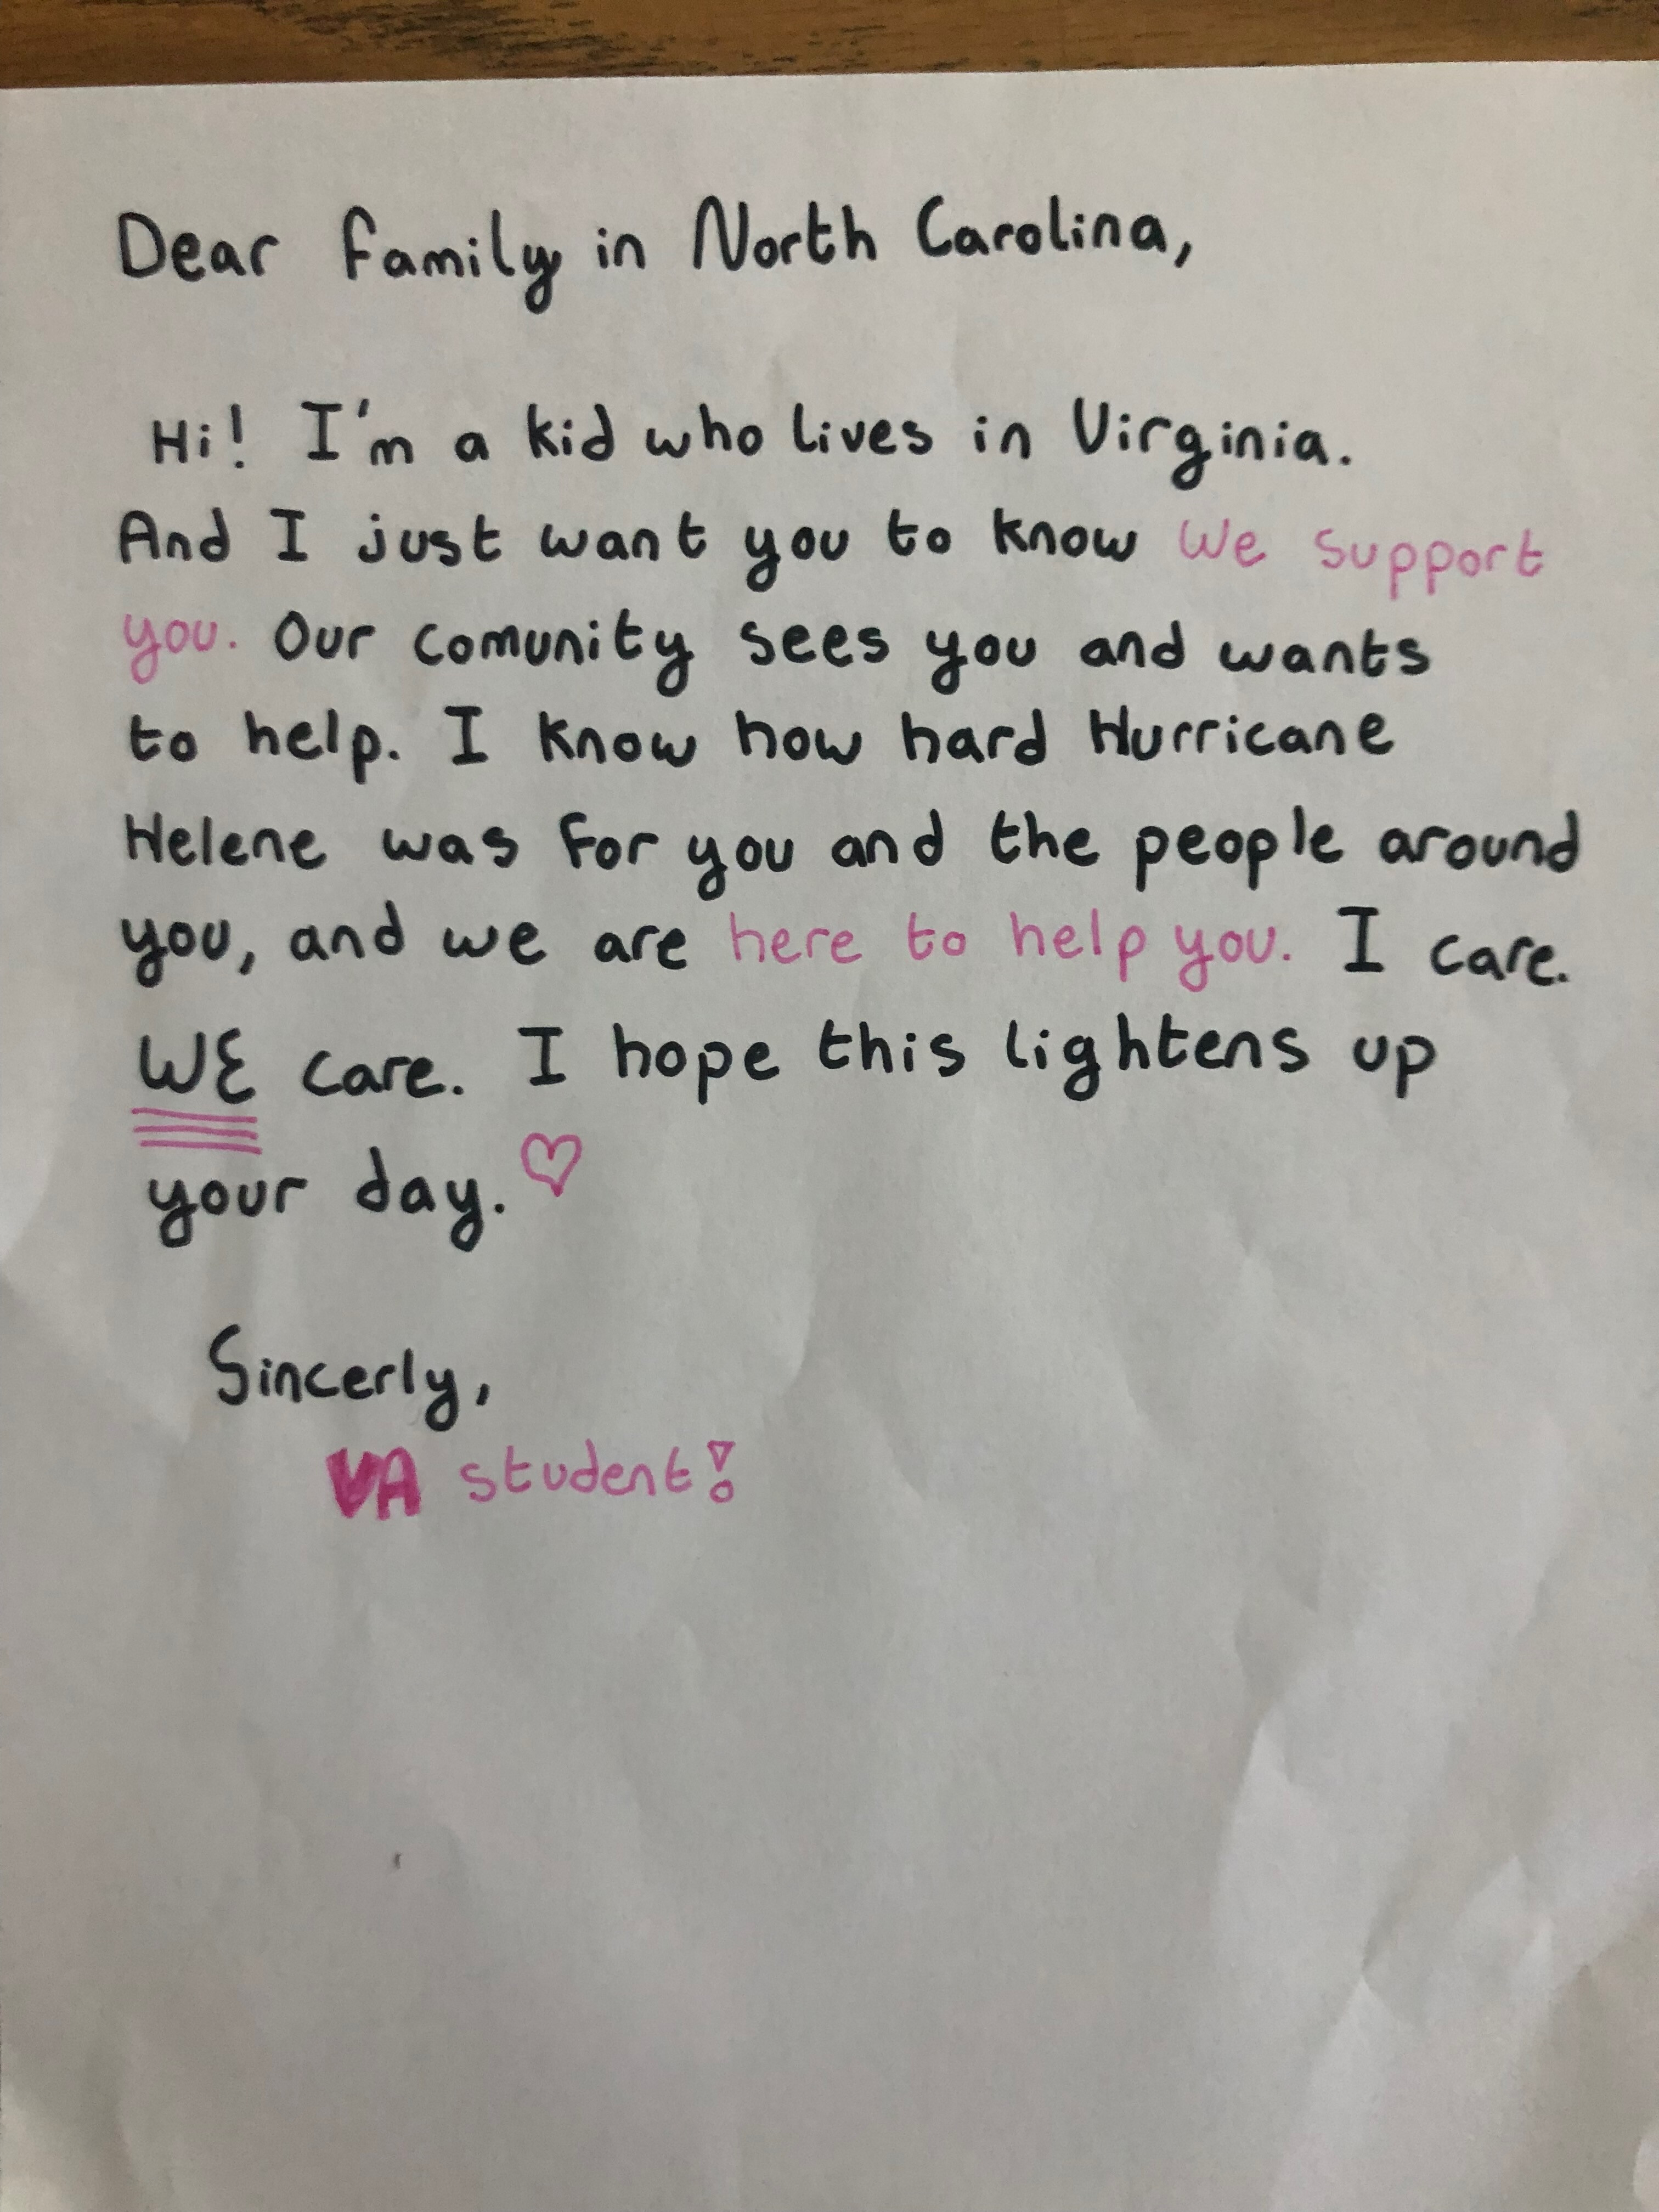 Dear family in North Carolina,
Hi! I'm a kid who lives in Virginia.
And I just want you to know We support
you. Our comunity sees you and wants
to help. I know how hard Hurricane
Helene was for you and the people around
you, and we are here to help you. I care.
WE care. I hope this lightens up
your day. ♡
Sincerly,
VA student!